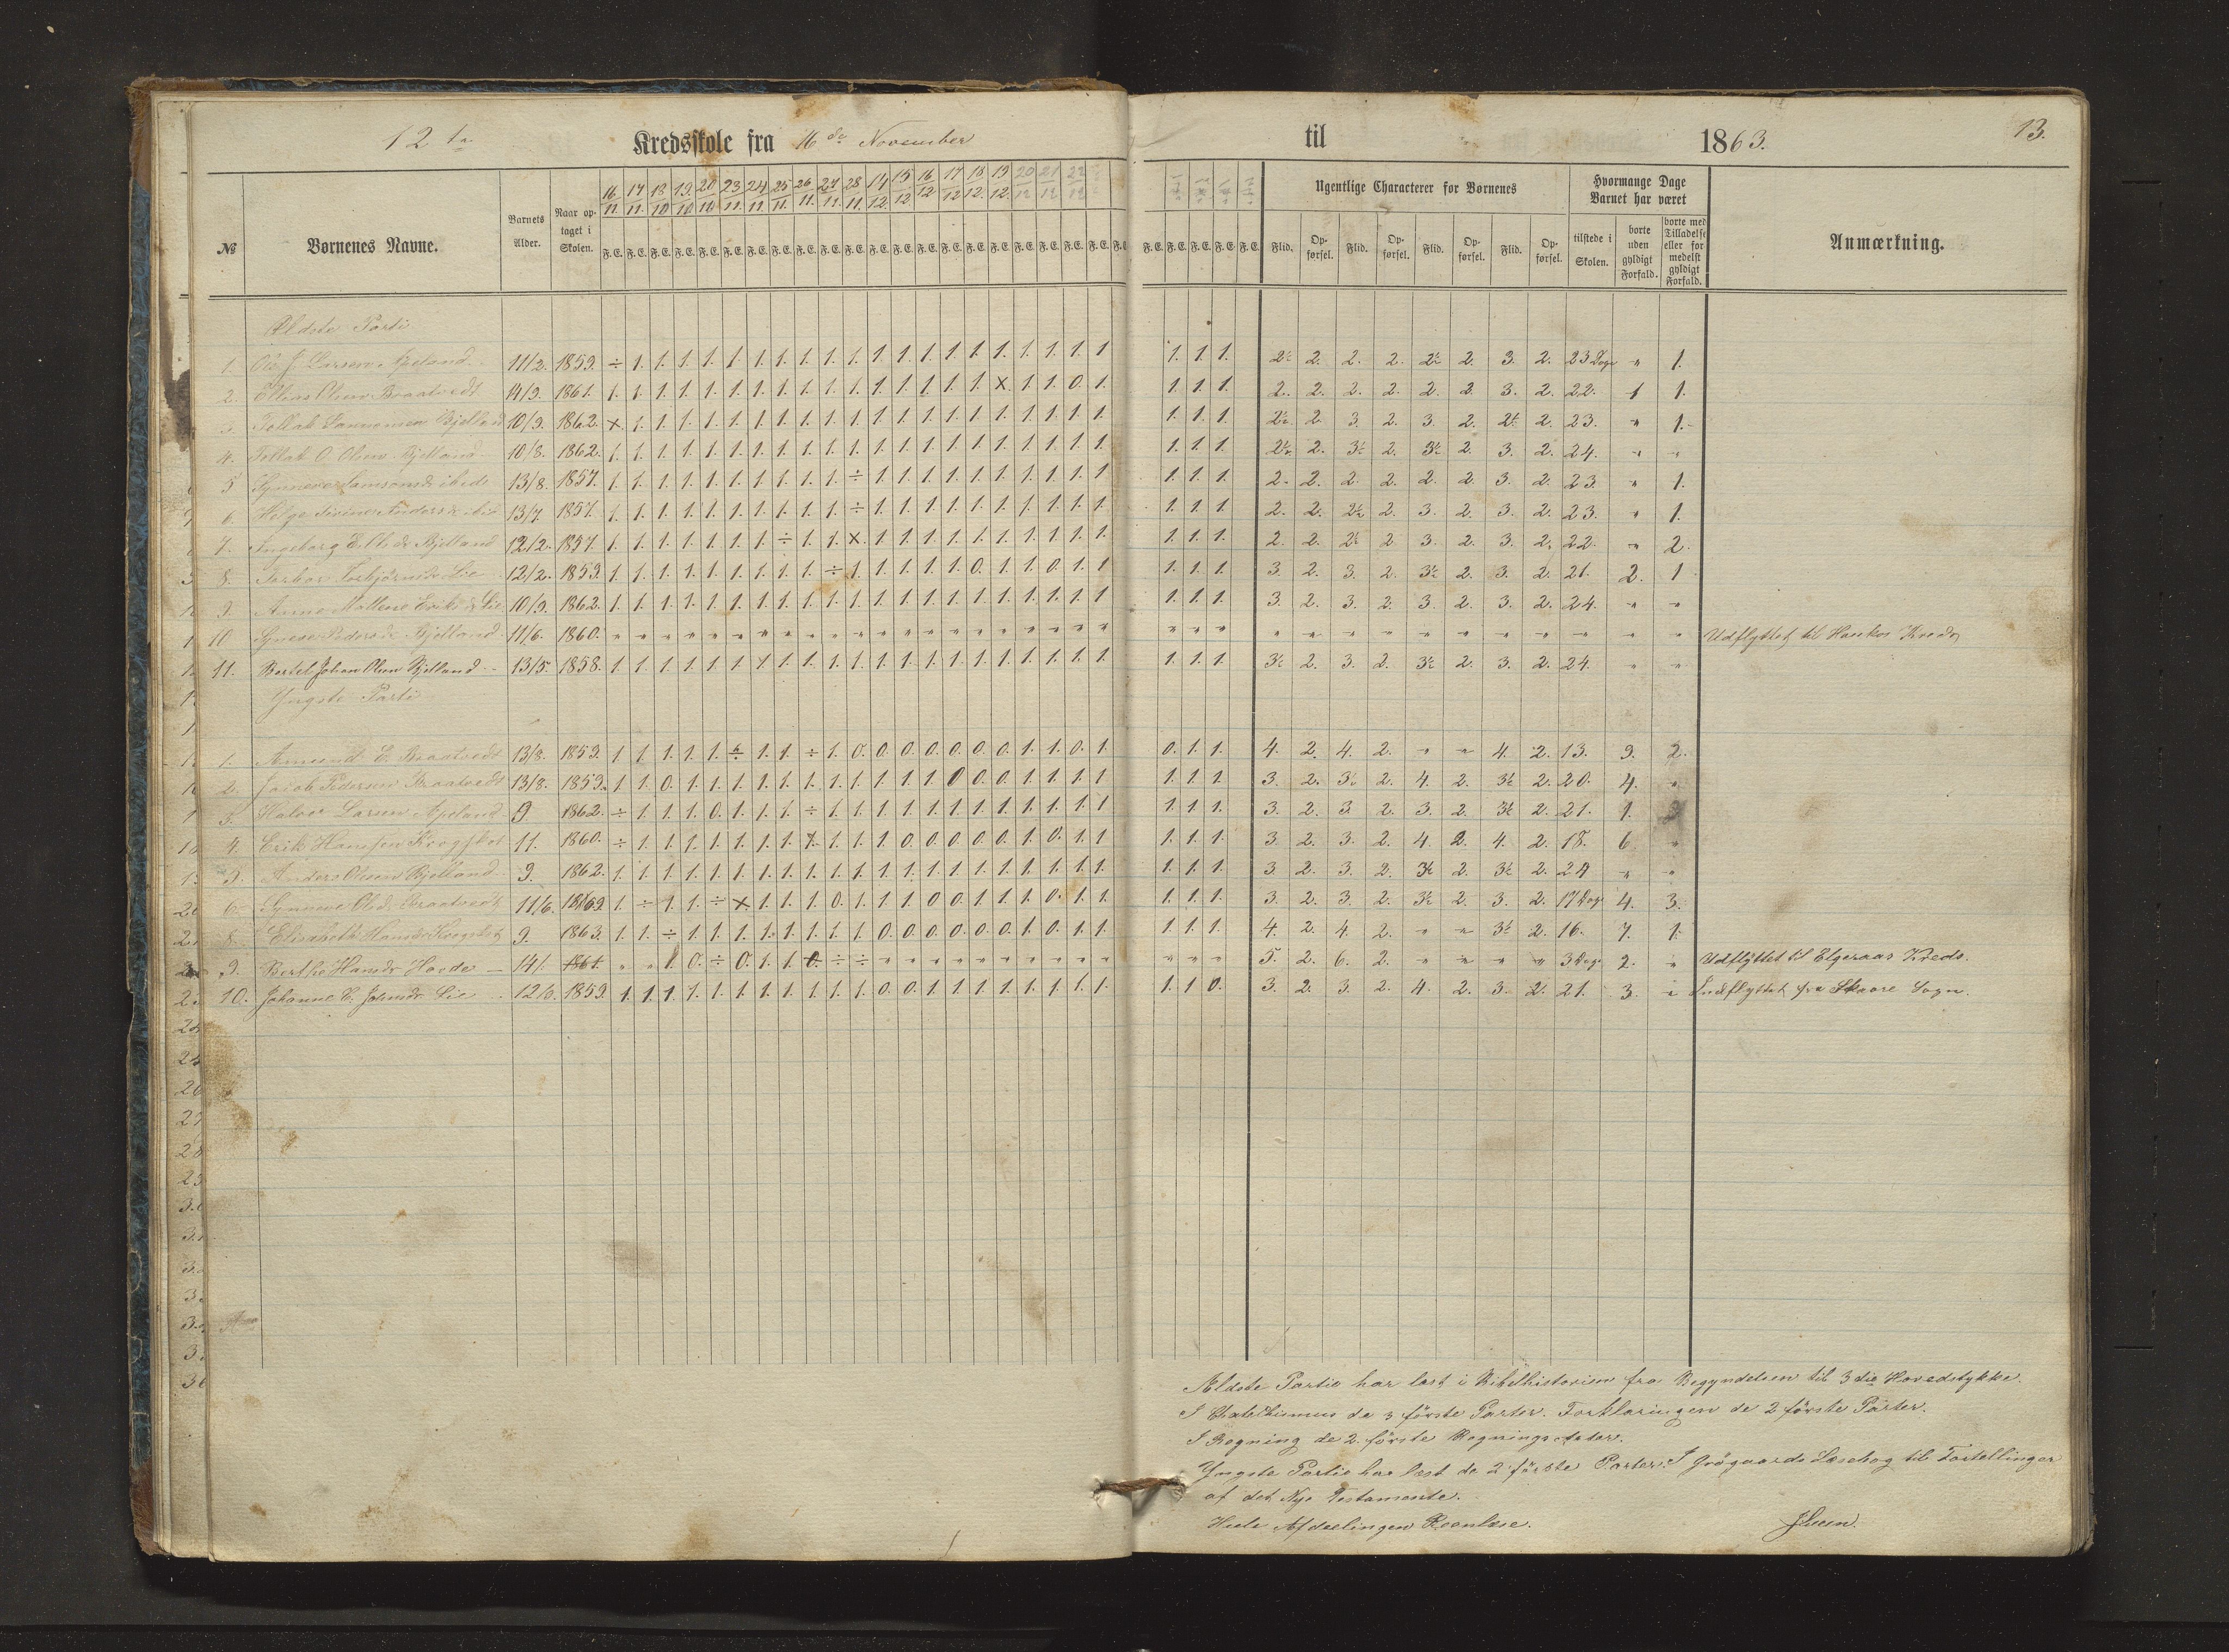 12te Kredsskole fra 16de November til 1863. 13.
№ Børnenes Navne. Barnets Alder. Naar optaget i Skolen. Ugentlige Characterer for Børnenes Hvormange Dage Barnet har været Anmærkning.
16/11. 17/11. 18/10 19/10 20/10 23/11. 24/11. 25/11. 26/11. 27/11. 28/11. 14/12. 15/12. 16/12 17/12 18/12. 19/12. 20/12 21/12 22/12
F. E. F. E. F. E. F. E. F. E. F. E. F. E. F. E. F. E. F. E. F. E. F. E. F. E. F. E. F. E. F. E. F. E. F. E. F. E. F. E. F. E. F. E. F. E. F. E. F. E. F. E.
Flid. Opførsel. Flid. Opførsel. Flid. Opførsel. Flid. Opførsel. tilstede i Skolen. borte uden gyldigt Forfald. borte med Tilladelse eller for medelst gyldigt Forfald.
Ældste Parti
1. Ole J. Larsen Apeland. 11/2. 1859. ÷ 1. 1. 1. 1. 1 1. 1. 1. 1. 1. 1. 1. 1. 1. 1. 1. 1. 1. 1. 1 1. 1. 1. 2½ 2. 2. 2. 2½ 2. 3. 2. 23 Dage " 1.
2. Elias Olsen Braatvedt 14/9. 1861. 1. 1. 1. 1. 1. 1. 1. 1. 1. 1. 1. 1. 1. 1. 1. 1. X. 1. 1. 0. 1. 1. 1. 1. 2. 2. 2. 2. 2. 2. 3. 2. 22. 1 1.
3. Tollak Bjelland 10/9. 1862. X. 1. 1. 1. 1. 1. 1. 1. 1. 1. 1. 1. 1. 1. 1. 1. 1. 1. 1. 1. 1. 1. 1. 1. 2½. 2. 3. 2. 3. 2. 2½ 2. 23. " 1.
4. Tollak O. Olsen Bjelland. 10/8. 1862. 1. 1. 1. 1. 1. 1. 1. 1. 1. 1. 1. 1. 1. 1. 1. 1. 1. 1. 1. 1. 1. 1. 1. 1. 2½. 2. 3½ 2. 3½ 2. 3. 2. 24. " "
5 Synneve Samsonsdr ibidr 13/8. 1857. 1. 1. 1. 1. 1. 1. 1. 1. 1. 1. ÷ 1. 1. 1. 1. 1. 1. 1. 1. 1. 1. 1. 1. 1. 2. 2. 2. 2. 2. 2. 3. 2. 23. " 1.
6. Helga Andersdr 13/7. 1857. 1. 1. 1. 1. 1. 1. 1. 1. 1. 1. ÷ 1. 1. 1. 1. 1. 1. 1. 1. 1. 1. 1. 1. 1. 2. 2. 2½ 2. 3. 2. 3. 2. 23. " 1.
7. Ingeborg Bjelland 12/2. 1857. 1. 1. 1. 1. 1. 1. 1. ÷ 1. 1. X. 1. 1. 1. 1. 1. 1. 1. 1. 1. 1. 1. 1. 1. 2. 2. 2½ 2. 3. 2. 3. 2. 22. " 2.
8. Torbjørnsdr Lie 12/2. 1859. 1. 1. 1. 1. 1. 1. 1. 1. 1. ÷ 1. 1. 1. 1. 1. 0. 1. 1. 0. 1. 1 1. 1. 1. 3. 2. 3. 2. 3½ 2. 3. 2. 21. 2. 1
9. Anna Mallene Eriksdr Lie 10/9. 1862. 1. 1. 1. 1. 1. 1. 1. 1. 1. 1. 1. 1. 1. 1. 1. 1. 1. 1. 1. 1. 1 1. 1. 1. 3. 2. 3. 2. 3. 2. 3. 2. 24. " "
10 Pedersdr Bjelland. 11/6. 1860. " " " " " " " " " " " " " " " " " " " " " " " " " " " " " " " " " " " Udflyttet til Haukos Kreds
11. Bertel Johan Olsen Bjelland - 13/5 1858. 1. 1. 1. 1. 1. 1. 1. 1. 1. 1. 1. 1. 1. 1. 1. 1. 1. 1. 1. 1. 1 1. 1. 1. 3½ 2. 3. 2. 3½ 2. 3. 2. 24. " "
Yngste Parti
1. Amund E. Braatvedt 13/8. 1859. 1 1 1. 1. 1. ÷ 1. 1. ÷ 1. 0. 0. 0. 0. 0. 0. 0. 1. 1. 0. 1 0. 1. 1. 4. 2. 4. 2. " " 4. 2. 13. 9. 2.
2. Jacob Pedersen Braatvedt 13/8. 1859. 1. 1. 0. 1. 1. 1. 1. 1. 1. 1. 1. 1. 1. 1. 0 0. 0. 1. 1. 1. 1 1. 1. 1. 3. 2. 3½ 2. 4. 2. 3½ 2. 20. 4. "
3. Halvor Larsen Apeland 9 1862. ÷ 1. 1. 1. 0. 1. 1. 1. ÷ 1. 1. 1. 1. 1. 1. 1. 1. 1. 1. 1. 1 1. 1. 1. 3. 2. 3. 2. 3. 2. 3½ 2. 21. 1. 2
4. Erik Hansen Krogflot 11. 1860. ÷ 1. 1. 1. 1. 1. 1. 1. 1. 1. 1. 1 0. 0. 0. 0. 0. 1. 0. 1. 1 1. 1. 1. 3. 2. 3. 2. 4. 2. 4. 2. 18. 6 "
5. Anders Olsen Bjelland 9. 1862. 1. 1. 1. 1. 1. 1. 1. 1. 1. 1. 1. 1. 1. 1. 1. 1. 1. 1. 1. 1. 1 1. 1. 1. 3. 2. 3. 2. 3½ 2. 3½ 2. 24 " "
6. Synneve Olsdr. Braatvedt 11/6. 1859. 1. ÷ 1. 1. ÷ X. 1. 1. 1. 0. 1. 1. 1. 0 0. 1. 1. 1. 0. 1. 1 1. 1. 1. 3. 2. 3. 2. 3½ 2. 3. 2. 17 Dage 4. 3.
8. Elisabeth Hansdr Krogflot 9. 1863. 1. 1. ÷ 1. 1. 1. 1. 1. 1. 1. 1. 0. 0. 0. 0. 0. 0. 1. 0. 1. 1 1. 1. 1. 4. 2. 4. 2. " " 3½ 2. 16. 7. 1.
9. Berthe Hansdr Hovde — 14/. 1861. " " 1. 0. ÷ 0. 1. 1. 0. ÷ ÷ " " " " " " " " " " " " " 5. 2. 6. 2. " " " " 3 Dage 2. " Udflyttet til Elgeraas Kreds.
10. Johanne E. Johnsdr Lie 12/3. 1859. 1. 1. 1. 1. 1. 1. 1. 1. 1. 1. 1. 0. 0. 1. 1. 1. 1. 1. 1. 1. 1. 1. 1 0. 3. 2. 3. 2. 4. 2. 3. 2. 21. 3. " Indflyttet fra Skaare Sogn.
Ældste Partie har læst i Bibelhistorien fra Begyndelsen til 3die Hovedstykke.
I Chatekismus de 3 første Parter. Forklaringen de 2 første Parter.
I Regning de 2. første Regningsarter.
Yngste Partie har læst de 2 første Parter. I Grøgaards Læsebog til Fortellinger
af det Nye Testamente.
Hele Afdeelingen Reenlæse.